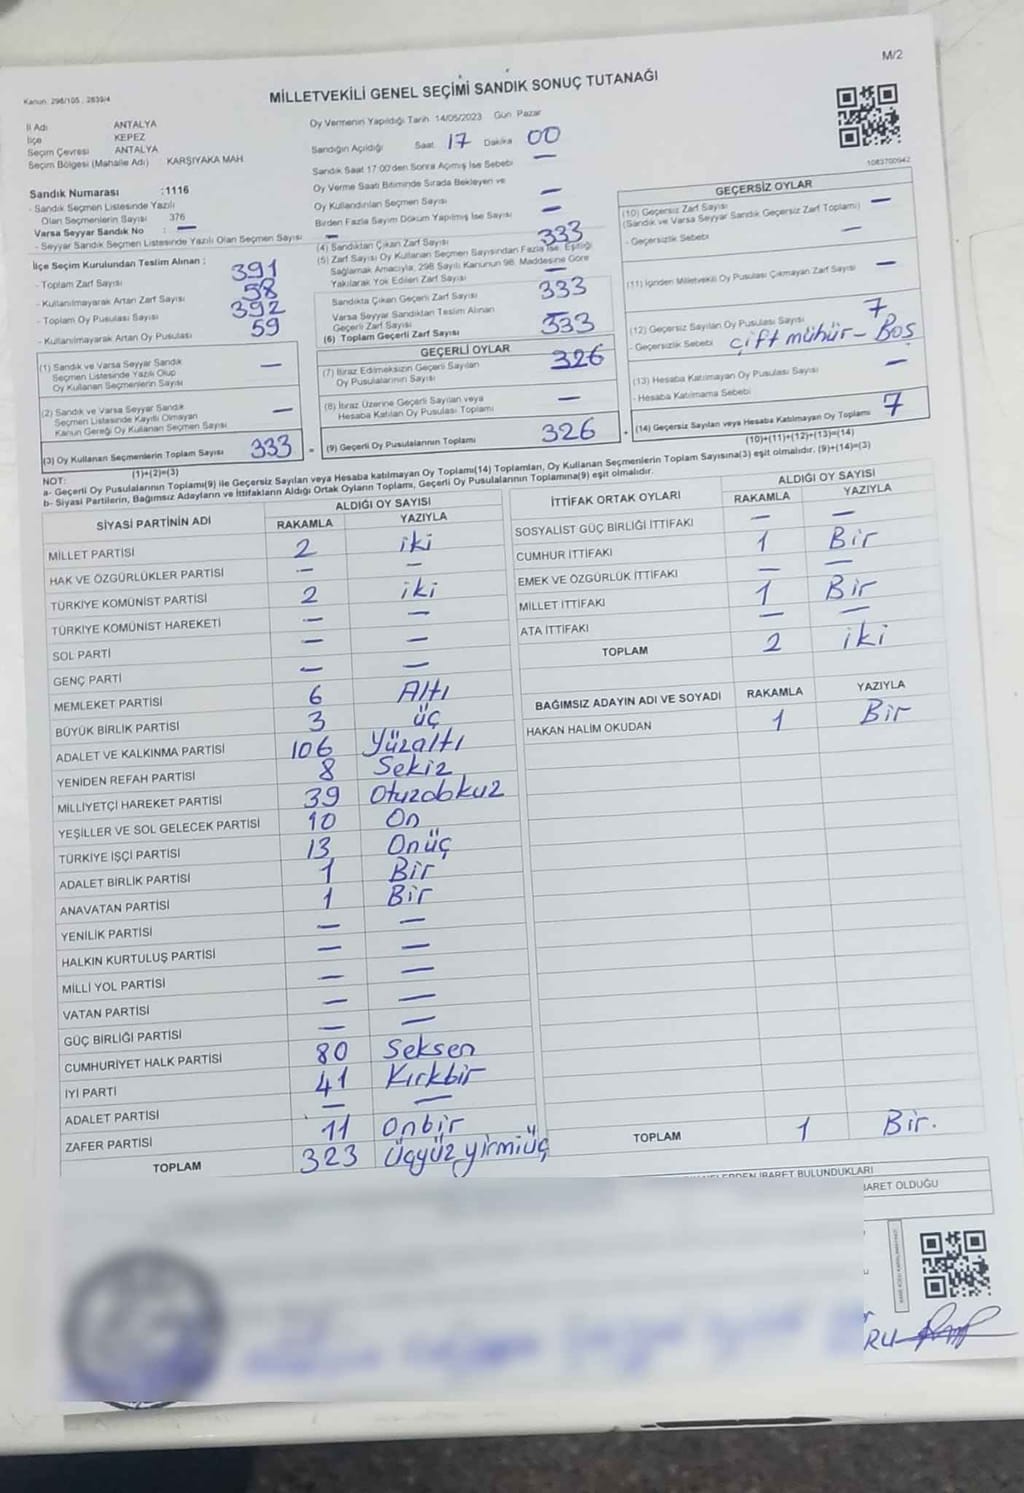 M/2
Kanun: 298/105 , 2839/4
MİLLETVEKİLİ GENEL SEÇİMİ SANDIK SONUÇ TUTANAĞI
İl Adı ANTALYA
İlçe KEPEZ
Seçim Çevresi ANTALYA
Seçim Bölgesi (Mahalle Adı) KARŞIYAKA MAH
Sandık Numarası :1116
- Sandık Seçmen Listesinde Yazılı
Olan Seçmenlerin Sayısı 376
Varsa Seyyar Sandık No : —
- Seyyar Sandık Seçmen Listesinde Yazılı Olan Seçmen Sayısı —
İlçe Seçim Kurulundan Teslim Alınan :
- Toplam Zarf Sayısı 391
- Kullanılmayarak Artan Zarf Sayısı 58
- Toplam Oy Pusulası Sayısı 392
- Kullanılmayarak Artan Oy Pusulası 59
(1) Sandık ve Varsa Seyyar Sandık
Seçmen Listesinde Yazılı Olup
Oy Kullanan Seçmenlerin Sayısı —
(2) Sandık ve Varsa Seyyar Sandık
Seçmen Listesinde Kayıtlı Olmayan
Kanun Gereği Oy Kullanan Seçmen Sayısı —
(3) Oy Kullanan Seçmenlerin Toplam Sayısı 333
(1)+(2)=(3)
Oy Vermenin Yapıldığı Tarih 14/05/2023 Gün. Pazar
Sandığın Açıldığı Saat 17 Dakika 00
Sandık Saat 17.00'den Sonra Açılmış İse Sebebi —
Oy Verme Saati Bitiminde Sırada Bekleyen ve
Oy Kullandırılan Seçmen Sayısı —
Birden Fazla Sayım Döküm Yapılmış İse Sayısı —
(4) Sandıktan Çıkan Zarf Sayısı 333
(5) Zarf Sayısı Oy Kullanan Seçmen Sayısından Fazla İse, Eşitliği
Sağlamak Amacıyla, 298 Sayılı Kanunun 98. Maddesine Göre
Yakılarak Yok Edilen Zarf Sayısı —
Sandıkta Çıkan Geçerli Zarf Sayısı 333
Varsa Seyyar Sandıktan Teslim Alınan
Geçerli Zarf Sayısı —
(6) Toplam Geçerli Zarf Sayısı 333
GEÇERLİ OYLAR
(7) İtiraz Edilmeksizin Geçerli Sayılan
Oy Pusulalarının Sayısı 326
(8) İtiraz Üzerine Geçerli Sayılan veya
Hesaba Katılan Oy Pusulası Toplamı —
= (9) Geçerli Oy Pusulalarının Toplamı 326
1083700942
GEÇERSİZ OYLAR
(10) Geçersiz Zarf Sayısı
(Sandık ve Varsa Seyyar Sandık Geçersiz Zarf Toplamı) —
- Geçersizlik Sebebi —
(11) İçinden Milletvekili Oy Pusulası Çıkmayan Zarf Sayısı —
(12) Geçersiz Sayılan Oy Pusulası Sayısı 7
- Geçersizlik Sebebi çift mühür - Boş
(13) Hesaba Katılmayan Oy Pusulası Sayısı —
- Hesaba Katılmama Sebebi
+ (14) Geçersiz Sayılan veya Hesaba Katılmayan Oy Toplamı 7
(10)+(11)+(12)+(13)=(14)
NOT:
a- Geçerli Oy Pusulalarının Toplamı(9) ile Geçersiz Sayılan veya Hesaba katılmayan Oy Toplamı(14) Toplamları, Oy Kullanan Seçmenlerin Toplam Sayısına(3) eşit olmalıdır. (9)+(14)=(3)
b- Siyasi Partilerin, Bağımsız Adayların ve İttifakların Aldığı Ortak Oyların Toplamı, Geçerli Oy Pusulalarının Toplamına(9) eşit olmalıdır.
SİYASİ PARTİNİN ADI ALDIĞI OY SAYISI
RAKAMLA YAZIYLA
MİLLET PARTİSİ 2 iki
HAK VE ÖZGÜRLÜKLER PARTİSİ — —
TÜRKİYE KOMÜNİST PARTİSİ 2 iki
TÜRKİYE KOMÜNİST HAREKETİ — —
SOL PARTİ — —
GENÇ PARTİ — —
MEMLEKET PARTİSİ 6 Altı
BÜYÜK BİRLİK PARTİSİ 3 üç
ADALET VE KALKINMA PARTİSİ 106 Yüzaltı
YENİDEN REFAH PARTİSİ 8 Sekiz
MİLLİYETÇİ HAREKET PARTİSİ 39 Otuzdokuz
YEŞİLLER VE SOL GELECEK PARTİSİ 10 On
TÜRKİYE İŞÇİ PARTİSİ 13 Onüç
ADALET BİRLİK PARTİSİ 1 Bir
ANAVATAN PARTİSİ 1 Bir
YENİLİK PARTİSİ — —
HALKIN KURTULUŞ PARTİSİ — —
MİLLİ YOL PARTİSİ — —
VATAN PARTİSİ — —
GÜÇ BİRLİĞİ PARTİSİ — —
CUMHURİYET HALK PARTİSİ 80 Seksen
İYİ PARTİ 41 Kırkbir
ADALET PARTİSİ — —
ZAFER PARTİSİ 11 Onbir
TOPLAM 323 Üçyüz yirmiüç
İTTİFAK ORTAK OYLARI ALDIĞI OY SAYISI
RAKAMLA YAZIYLA
SOSYALİST GÜÇ BİRLİĞİ İTTİFAKI — —
CUMHUR İTTİFAKI 1 Bir
EMEK VE ÖZGÜRLÜK İTTİFAKI — —
MİLLET İTTİFAKI 1 Bir
ATA İTTİFAKI — —
TOPLAM 2 iki
BAĞIMSIZ ADAYIN ADI VE SOYADI RAKAMLA YAZIYLA
HAKAN HALİM OKUDAN 1 Bir
TOPLAM 1 Bir.
İBARET BULUNDUKLARI
BARET OLDUĞU
RU